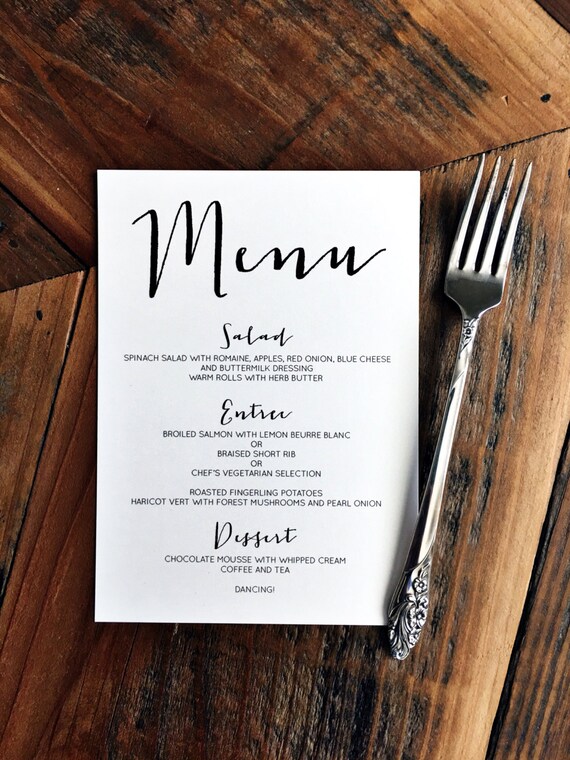 Menu
Salad
SPINACH SALAD WITH ROMAINE, APPLES, RED ONION, BLUE CHEESE
AND BUTTERMILK DRESSING
WARM ROLLS WITH HERB BUTTER
Entree
BROILED SALMON WITH LEMON BEURRE BLANC
OR
BRAISED SHORT RIB
OR
CHEF'S VEGETARIAN SELECTION
ROASTED FINGERLING POTATOES
HARICOT VERT WITH FOREST MUSHROOMS AND PEARL ONION
Dessert
CHOCOLATE MOUSSE WITH WHIPPED CREAM
COFFEE AND TEA
DANCING!